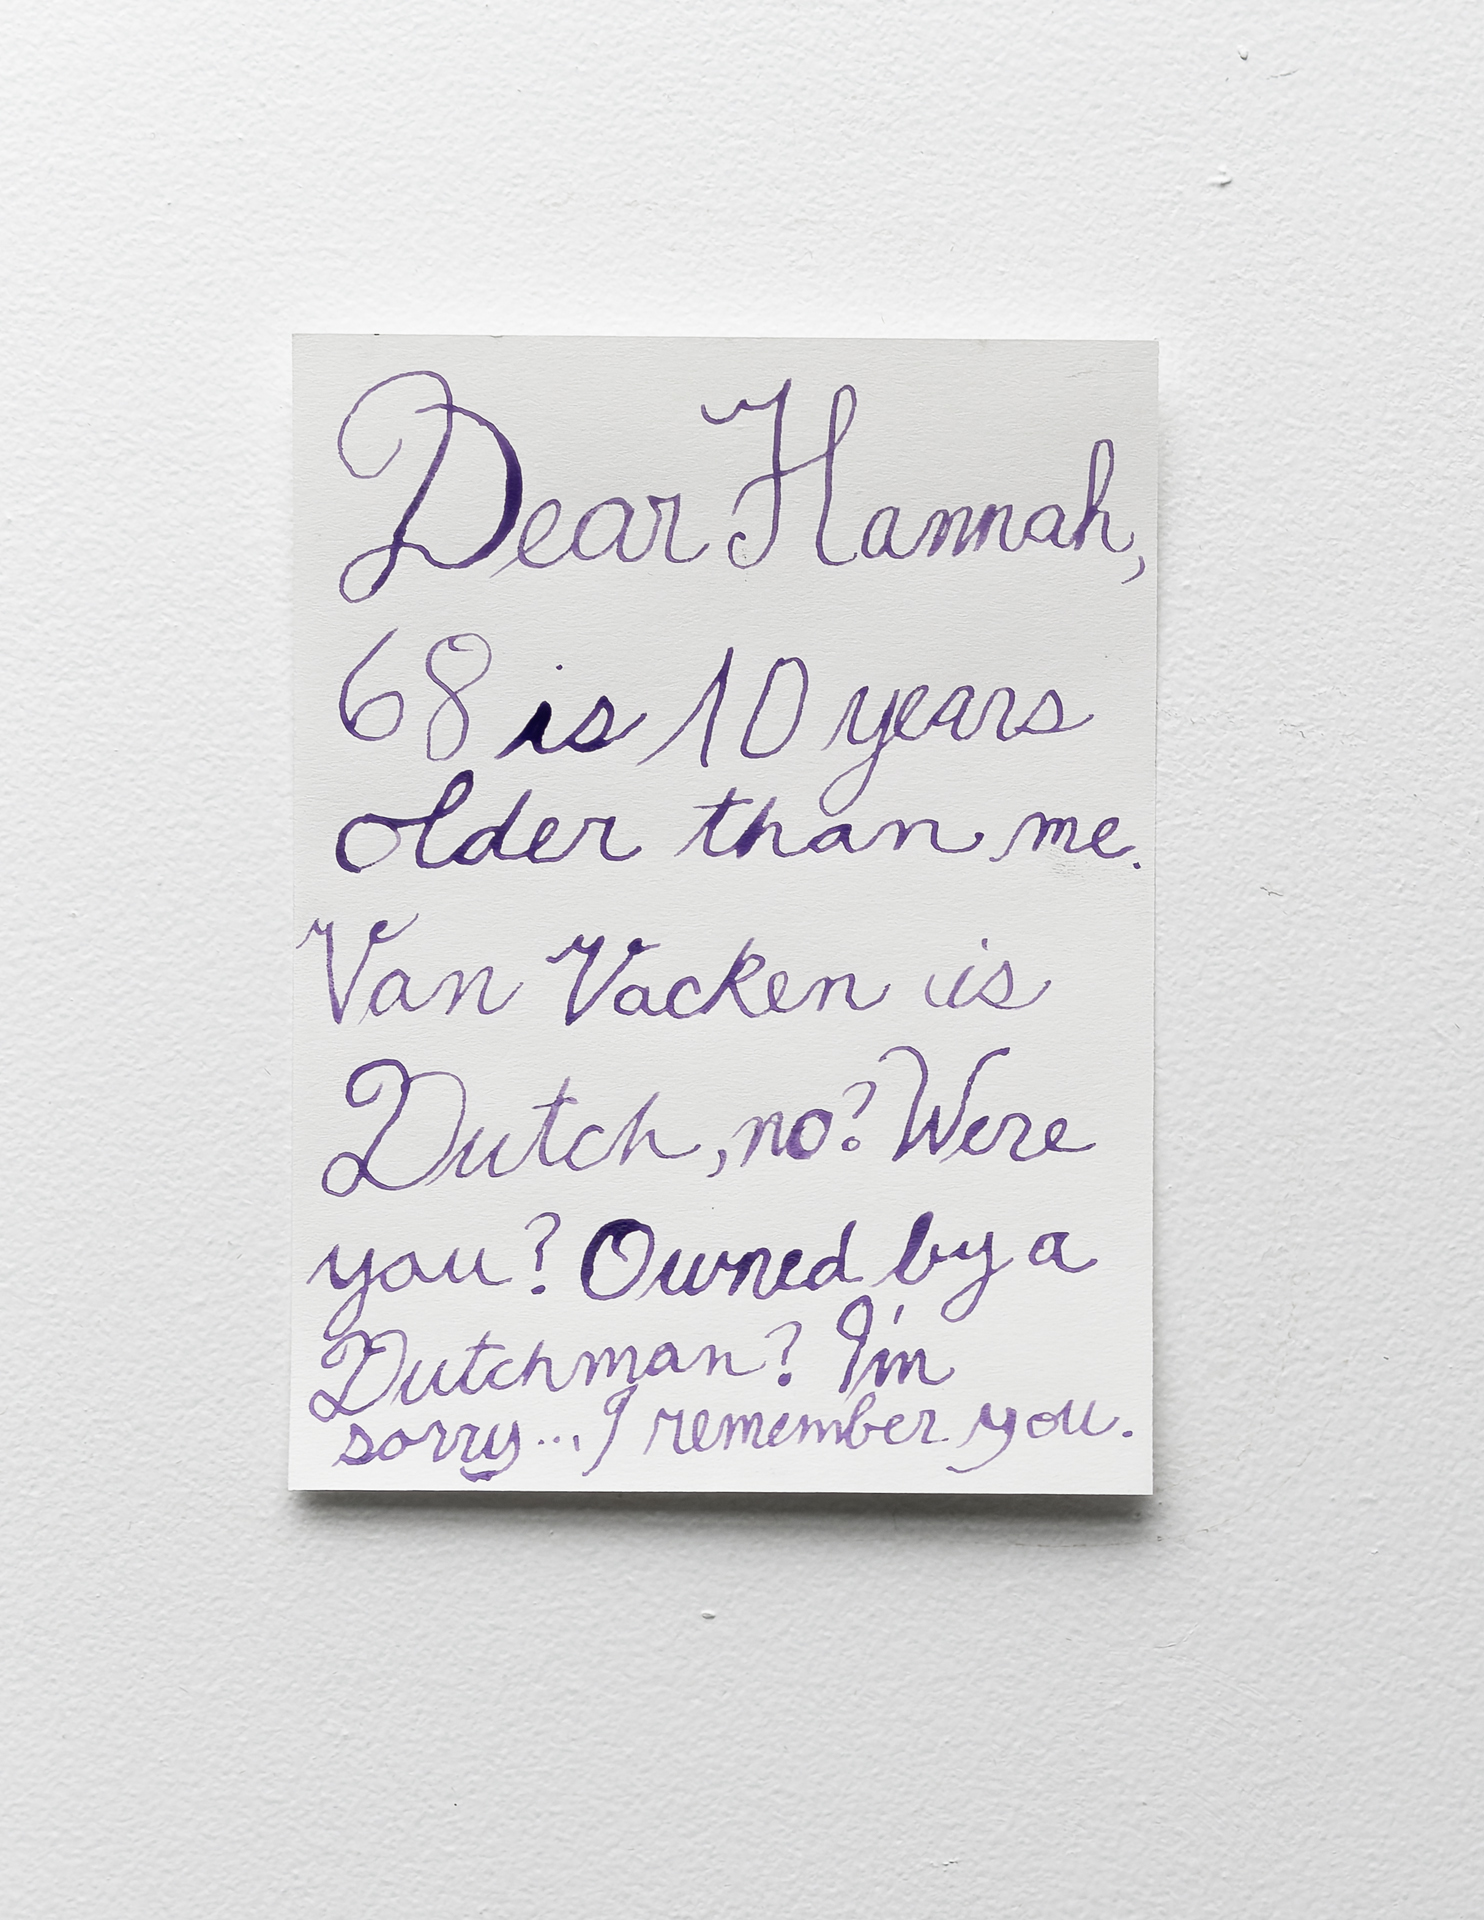 Dear Hannah,
68 is 10 years
older than me.
Van Vacken is
Dutch, no? Were
you? Owned by a
Dutchman? I'm
sorry... I remember you.